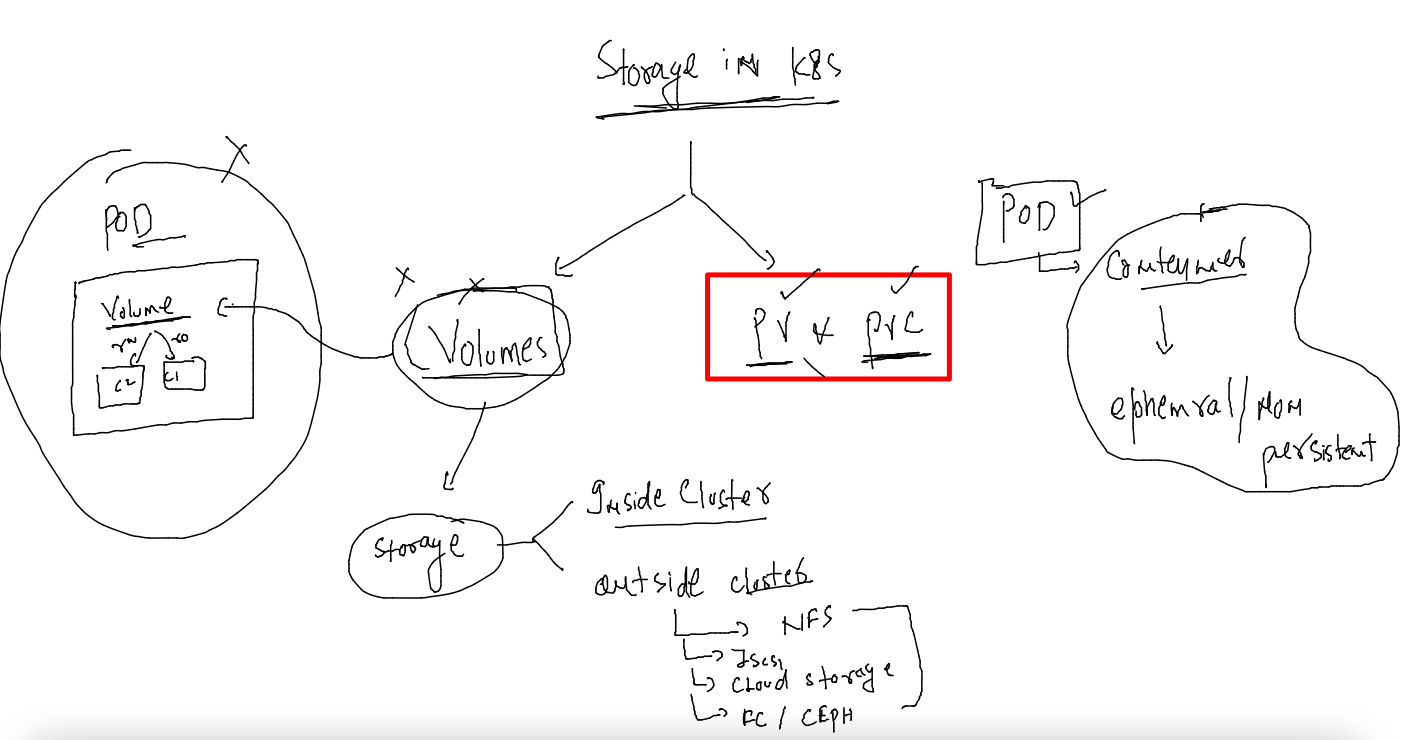 Storage in K8s
POD
Volume
rw
ro
C2
C1
Volumes
PV & PVC
POD
Conteyner
ephemral / non
persistent
Storage
Inside Cluster
outside cluster
NFS
Iscsi
Cloud storage
FC / CEPH